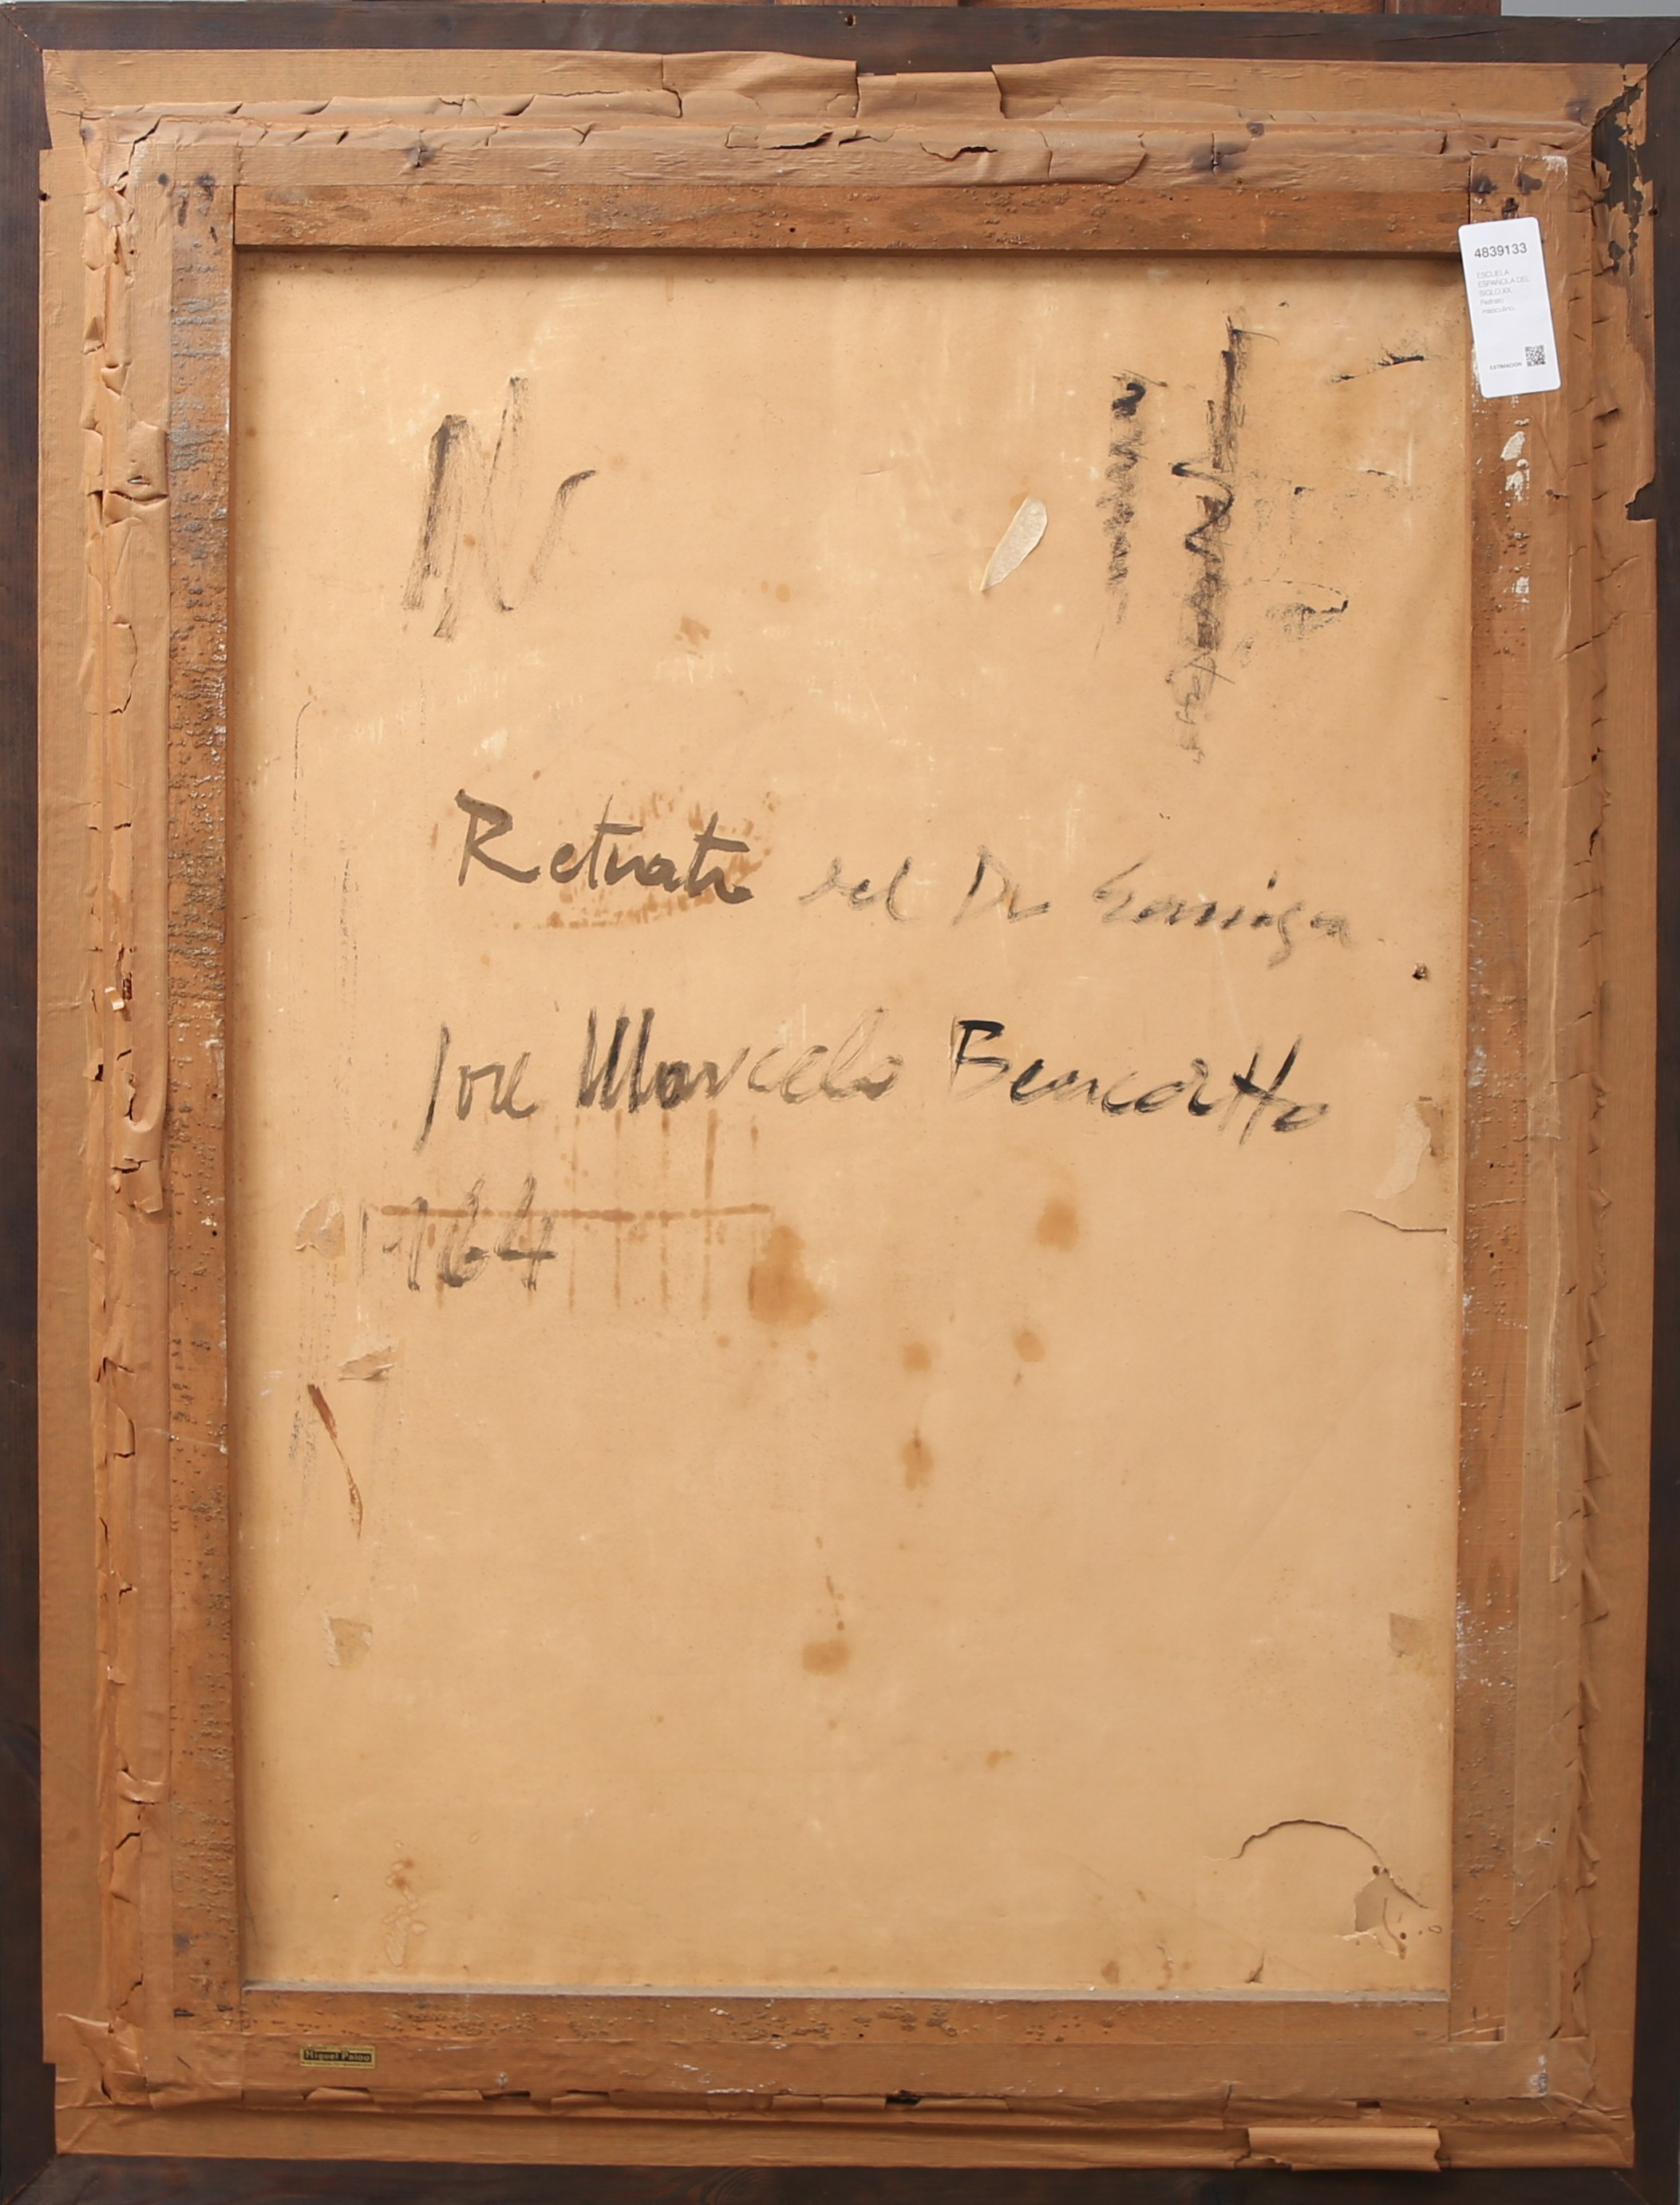 4839133
ESCUELA
ESPAÑOLA DEL
SIGLO XX.
Retrato
masculino.
ESTIMACIÓN
Retrato del Dr
Jose Marcelo Benedetto
1964
Miguel Palou